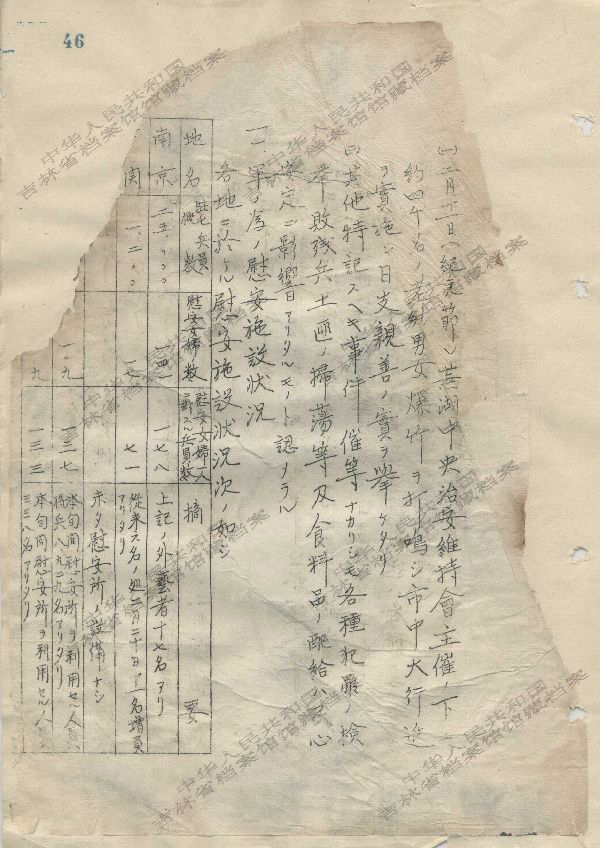 46
㈠二月十一日ハ紀元節ヽシ蕪湖中央治安維持會主催ノ下ニ
約四千名ノ男女爆竹ヲ打鳴シ市中大行進
ヲ實施シ日支親善ノ實ヲ擧ケタリ
㈡其他特記スヘキ事件 催等ナカリシモ各種犯罪ノ檢
擧敗殘兵土匪ノ掃蕩等及食料品ノ配給ハ人心
安定ニ影響アリタルモノト認メラル
一軍ノ爲ノ慰安施設狀況
各地ニ於ケル慰安施設狀況次ノ如シ
地名 駐屯兵員概數 慰安婦數 慰安婦一人ニ對スル兵員數 摘要
南京 二五、〇〇〇 一四一 一七八 上記ノ外藝者十七名アリ
関 一、二〇〇 一七 七一 從來六名ノ処二月二十日十一名增員アリタリ
未タ慰安所ノ設備ナシ
一〇九 一三七 本旬間慰安所ヲ利用セル人員將兵八九二九名アリタリ
九 一三三 本旬間慰安所ヲ利用セル人員三三八名アリタリ
中华人民共和国
吉林省档案馆馆藏档案